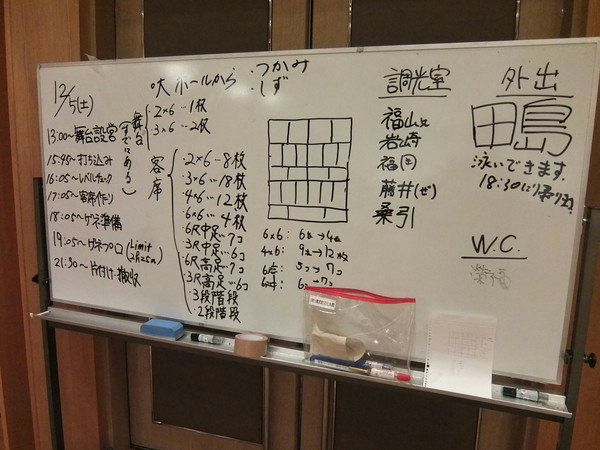 12/5(土)
13:00~舞台設営
15:45~打ち込み
16:05~レベルチェック
17:05~客席作り
18:05~ゲネ準備
19:05~ゲネプロ(Limit 2h25m)
21:30~片付け・撤収
大ホールから
・つかみ
・しず
舞台(すでにある)
・2×6…1枚
・3×6…2枚
客席
・2×6…8枚
・3×6…18枚
・4×6…12枚
・6×6…4枚
・6尺中足…7コ
・3尺中足…6コ
・6尺高足…7コ
・3尺高足…6コ
・3段階段
・2段階段
6×6:
4×6: 9→12枚
調光室
岩崎
福岡
藤井(ぜ)
桑引
外出
田島
泳いできます。
18:30
W.C.